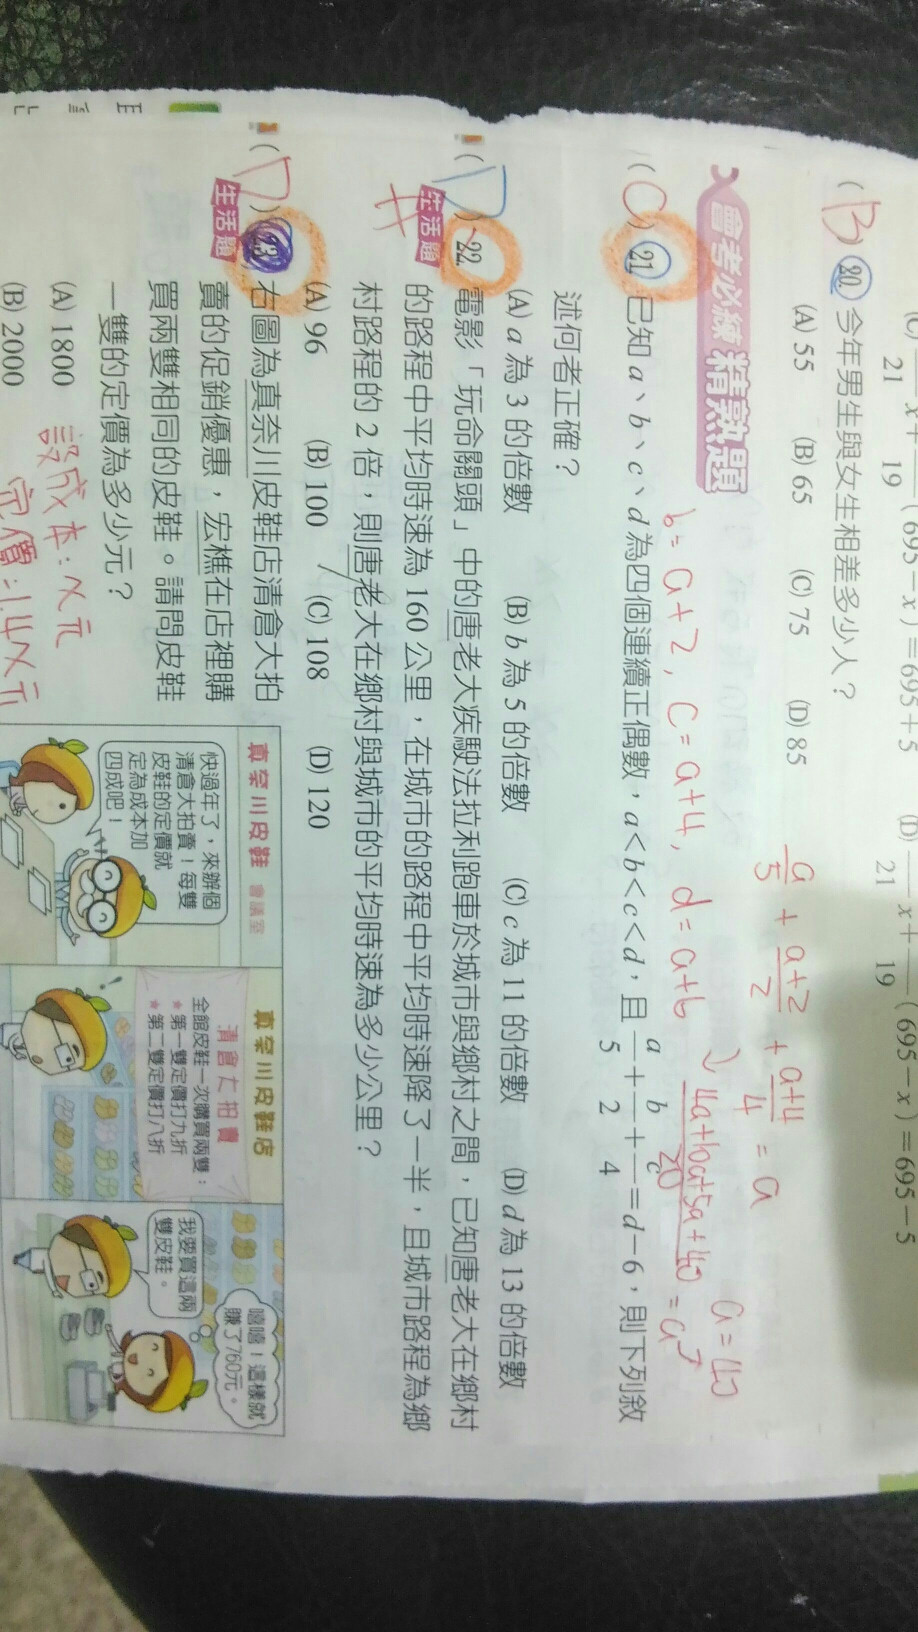 (C) ── x + ── ( 695 − x ) = 695 + 5
21 19
(D) ── x + ── ( 695 − x ) = 695 − 5
21 19
( B ) 20. 今年男生與女生相差多少人？
(A) 55 (B) 65 (C) 75 (D) 85
會考必練 精熟題
a/5 + a+2/2 + a+4/4 = a
b = a+2, C = a+4, d = a+6
4a+10a+5a+40/20 = a
a = 40
( C ) 21. 已知 a、b、c、d 為四個連續正偶數，a<b<c<d，且 a/5 + b/2 + c/4 = d－6，則下列敘
述何者正確？
(A) a 為 3 的倍數 (B) b 為 5 的倍數 (C) c 為 11 的倍數 (D) d 為 13 的倍數
( D ) 22. 電影「玩命關頭」中的唐老大疾駛法拉利跑車於城市與鄉村之間，已知唐老大在鄉村
生活題
的路程中平均時速為 160 公里，在城市的路程中平均時速降了一半，且城市路程為鄉
村路程的 2 倍，則唐老大在鄉村與城市的平均時速為多少公里？
(A) 96 (B) 100 (C) 108 (D) 120
( D ) 23. 右圖為真奈川皮鞋店清倉大拍
生活題
賣的促銷優惠，宏樵在店裡購
買兩雙相同的皮鞋。請問皮鞋
一雙的定價為多少元？
(A) 1800
(B) 2000
設成本：x元
定價：1.4x元
真奈川皮鞋 會議室
快過年了，來辦個
清倉大拍賣！每雙
皮鞋的定價就
定為成本加
四成吧！
真奈川皮鞋店
清倉大拍賣
全館皮鞋一次購買兩雙：
★第一雙定價打九折
★第二雙定價打八折
我要買這兩
雙皮鞋。
嘻嘻！這樣就
賺了760元。